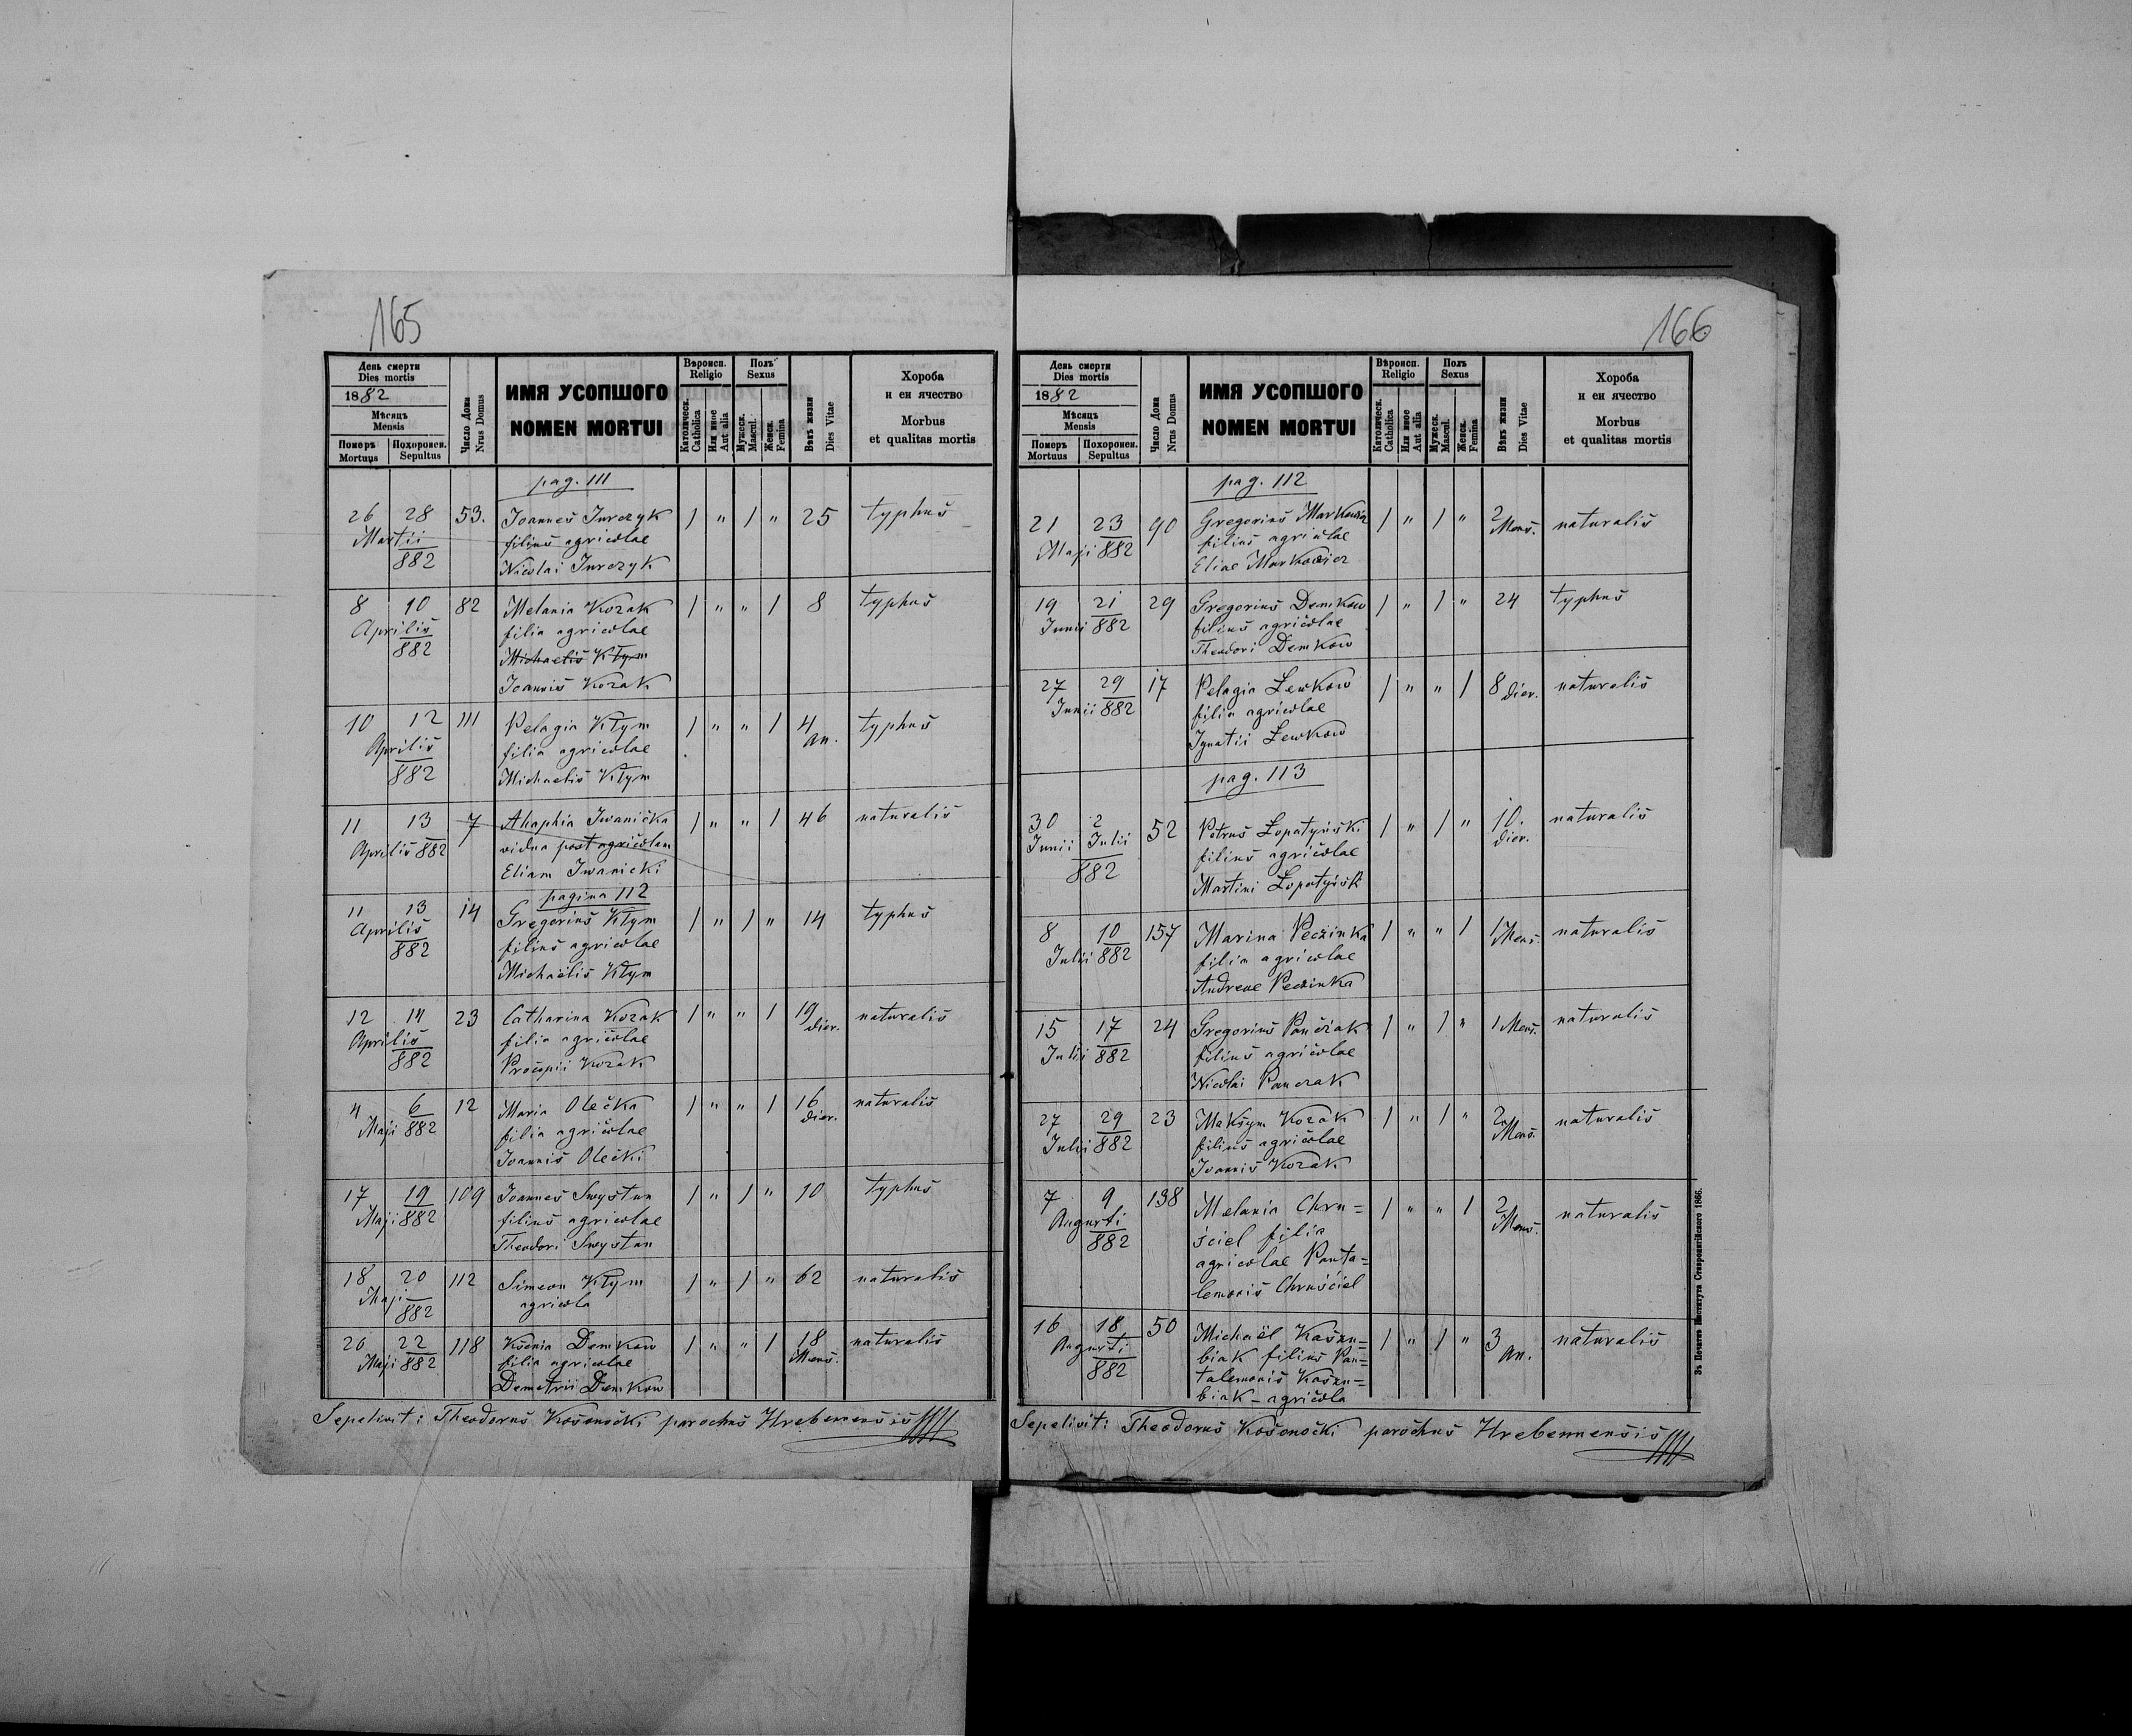 165
День смерти
Dies mortis
1882
Мѣсяцъ
Mensis
Померъ Mortuus
Похоронен. Sepultus
Число Дома
Nrus Domus
ИМЯ УСОПШОГО
NOMEN MORTUI
Вѣроисп.
Religio
Католическ.
Catholica
Или иное
Aut alia
Полъ
Sexus
Мужеск.
Mascul.
Женск.
Femina
Вѣкъ жизни
Dies Vitae
Хороба
и еи ячество
Morbus
et qualitas mortis
pag. 111
26 28 53. Joannes Jurczyk 1 " 1 " 25 typhus
Martii filius agricolae
882 Nicolai Jurczyk
8 10 82 Melania Kozak 1 " " 1 8 typhus
Aprilis filia agricolae
882 Michaelis Kłym
Joannis Kozak
10 12 111 Pelagia Kłym 1 " " 1 4 an. typhus
Aprilis filia agricolae
882 Michaelis Kłym
11 13 7 Ahaphia Iwanicka 1 " " 1 46 naturalis
Aprilis 882 vidua post agricolam
Eliam Iwanicki
pagina 112
11 13 14 Gregorius Kłym 1 " 1 " 14 typhus
Aprilis filius agricolae
882 Michaëlis Kłym
12 14 23 Catharina Kozak 1 " " 1 19 dier. naturalis
Aprilis filia agricolae
882 Procopii Kozak
4 6 12 Maria Olecka 1 " " 1 16 dier. naturalis
Maji 882 filia agricolae
Joannis Olecki
17 19 109 Joannes Swystun 1 " 1 " 10 typhus
Maji 882 filius agricolae
Theodori Swystun
18 20 112 Simeon Kłym 1 " 1 " 62 naturalis
Maji 882 agricola
20 22 118 Ksenia Demkow 1 " " 1 18 Mens. naturalis
Maji 882 filia agricolae
Demetrii Demkow
Sepelivit: Theodorus Kosonocki parochus Hrebennensis
166
День смерти
Dies mortis
1882
Мѣсяцъ
Mensis
Померъ Mortuus
Похоронен. Sepultus
Число Дома
Nrus Domus
ИМЯ УСОПШОГО
NOMEN MORTUI
Вѣроисп.
Religio
Католическ.
Catholica
Или иное
Aut alia
Полъ
Sexus
Мужеск.
Mascul.
Женск.
Femina
Вѣкъ жизни
Dies Vitae
Хороба
и еи ячество
Morbus
et qualitas mortis
pag. 112
21 23 90 Gregorius Markowicz 1 " 1 " 2 Mens. naturalis
Maji 882 filius agricolae
Eliae Markowicz
19 21 29 Gregorius Demkow 1 " 1 " 24 typhus
Junii 882 filius agricolae
Theodori Demkow
27 29 17 Pelagia Lewkow 1 " " 1 8 dier. naturalis
Junii 882 filia agricolae
Ignatii Lewkow
pag. 113
30 2 52 Petrus Łopatyński 1 " 1 " 10. dier. naturalis
Junii Julii filius agricolae
882 Martini Łopatyński
8 10 157 Marina Peczinka 1 " " 1 1 Mens. naturalis
Julii 882 filia agricolae
Andreae Peczinka
15 17 24 Gregorius Panczak 1 " 1 " 1 Mens. naturalis
Julii 882 filius agricolae
Nicolai Panczak
27 29 23 Maksym Kozak 1 " 1 " 2 Mens. naturalis
Julii 882 filius agricolae
Joannis Kozak
7 9 138 Melania Chru= 1 " " 1 2 Mens. naturalis
Augusti ściel filia
882 agricolae Panta=
lemonis Chruściel
16 18 50 Michaël Kaszu= 1 " 1 " 3 an. naturalis
Augusti biak filius Pan=
882 talemonis Kaszu=
biak - agricola
Sepelivit: Theodorus Kosonocki parochus Hrebennensis
Зъ Печатнѣ Института Ставропигійского 1866.